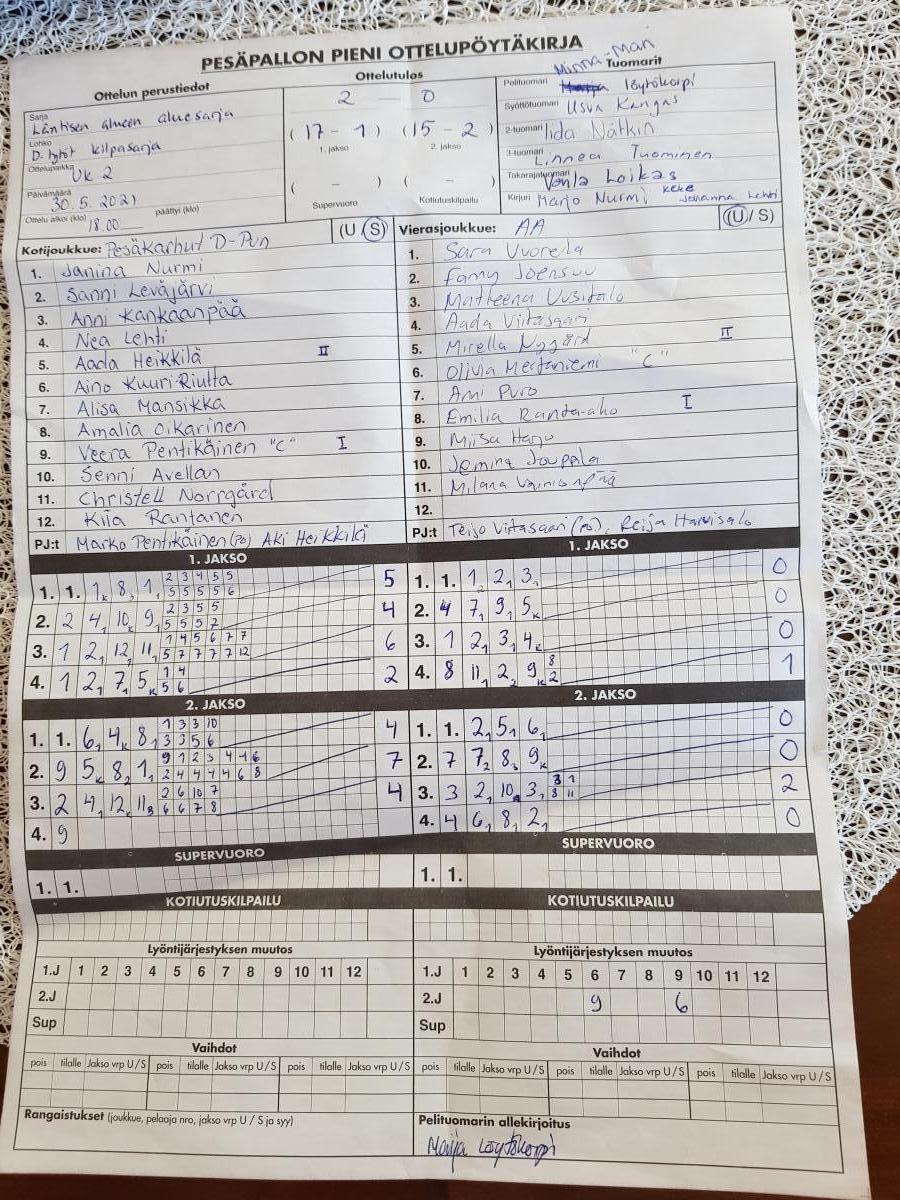 PESÄPALLON PIENI OTTELUPÖYTÄKIRJA
Ottelun perustiedot
Sarja Läntisen alueen aluesarja
Lohko D-tytöt kilpasarja
Ottelupaikka UK 2
Päivämäärä 30.5.2021
Ottelu alkoi (klo) 18.00 päättyi (klo)
Ottelutulos
2 - 0
(17 - 1) (15 - 2)
1. jakso 2. jakso
( - ) ( - )
Supervuoro Kotiutuskilpailu
Minna-Mari
Tuomarit
Pelituomari Löytökorpi
Syöttötuomari Usva Kangas
2-tuomari Iida Nätkin
3-tuomari Linnea Tuominen
Takarajatuomari Venla Loikas
Kirjuri Marjo Nurmi Keke Johanna Lehti
Kotijoukkue: Pesäkarhut D-Pun (U/S)
1. Janina Nurmi
2. Sanni Leväjärvi
3. Anni Kankaanpää
4. Nea Lehti
5. Aada Heikkilä II
6. Aino Kuuri-Riutta
7. Alisa Mansikka
8. Amalia Oikarinen
9. Veera Pentikäinen "C" I
10. Senni Avellan
11. Christell Norrgård
12. Kiia Rantanen
PJ:t Marko Pentikäinen (PO) Aki Heikkilä
Vierasjoukkue: AA (U/S)
1. Sara Vuorela
2. Fanny Joensuu
3. Matleena Uusitalo
4. Aada Viitasaari
5. Mirella Nygård II
6. Olivia Mertaniemi "C"
7. Ami Puro
8. Emilia Ranta-aho I
9. Miisa Harju
10. Jemina Jouppala
11. Milana Vainionpää
12.
PJ:t Teijo Viitasaari (PO), Reija Harvisalo
1. JAKSO
1. 1. 1K 8, 1, 2 3 4 5 5 5
5 5 5 5 6
2. 2 4, 10K 9, 2 3 5 5 4
5 5 5 7
3. 1 2, 12, 11, 1 4 5 6 7 7 6
5 7 7 7 7 12
4. 1 2, 7, 5K 1 4 2
5 6
1. JAKSO
1. 1. 1, 2, 3, 0
2. 4 7, 9, 5K 0
3. 1 2, 3, 4K 0
4. 8 11, 2, 9K 8 1
2
2. JAKSO
1. 1. 6, 4K 8, 1 3 3 10 4
3 3 5 6
2. 9 5K 8, 1, 9 1 2 3 4 4 6 7
2 4 4 4 4 6 8
3. 2 4, 12, 11, 2 6 10 7 4
6 6 7 8
4. 9
2. JAKSO
1. 1. 2, 5, 6, 0
2. 7 7, 8, 9K 0
3. 3 2, 10, 3, 3 1 2
8 11
4. 4 6, 8, 2, 0
SUPERVUORO
1. 1.
SUPERVUORO
1. 1.
KOTIUTUSKILPAILU
KOTIUTUSKILPAILU
Lyöntijärjestyksen muutos
1.J 1 2 3 4 5 6 7 8 9 10 11 12
2.J
Sup
Lyöntijärjestyksen muutos
1.J 1 2 3 4 5 6 7 8 9 10 11 12
2.J 9 6
Sup
Vaihdot
pois tilalle Jakso vrp U/S pois tilalle Jakso vrp U/S pois tilalle Jakso vrp U/S
Vaihdot
pois tilalle Jakso vrp U/S pois tilalle Jakso vrp U/S pois tilalle Jakso vrp U/S
Rangaistukset (joukkue, pelaaja nro, jakso vrp U / S ja syy)
Pelituomarin allekirjoitus
Löytökorpi